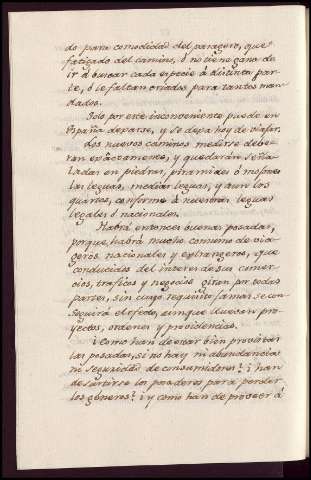 do para comodidad del pasagero, que
fatigado del camino, ó no tiene gana de
ir á buscar cada especie á distinta par-
te, ó le faltan criados para tantos man-
dados.
Solo por este inconveniente puede en
España dexarse, y se dexa hoy de viajar.
Los nuevos caminos medirse debe-
ran exâctamente, y quedarán seña-
ladas en piedras, piramides ó mojones
las leguas, medias leguas, y aun los
quartos, conforme á nuestras leguas
legales ó nacionales.
Habrá entonces buenas posadas,
porque habrá mucho consumo de via-
geros nacionales y extrangeros, que
conducidos del interes de sus comer-
cios, traficos y negocios giren por todas
partes, sin cuyo requisito jamas se con-
seguirá el efecto, aunque lluevan pro-
yectos, ordenes y providencias.
¿Como han de estar bien provistas
las posadas, si no hay ni abundancia
ni seguridad de consumidores? ¿han
de surtirse los posaderos para perder
los géneros? ¿y como han de proveer á